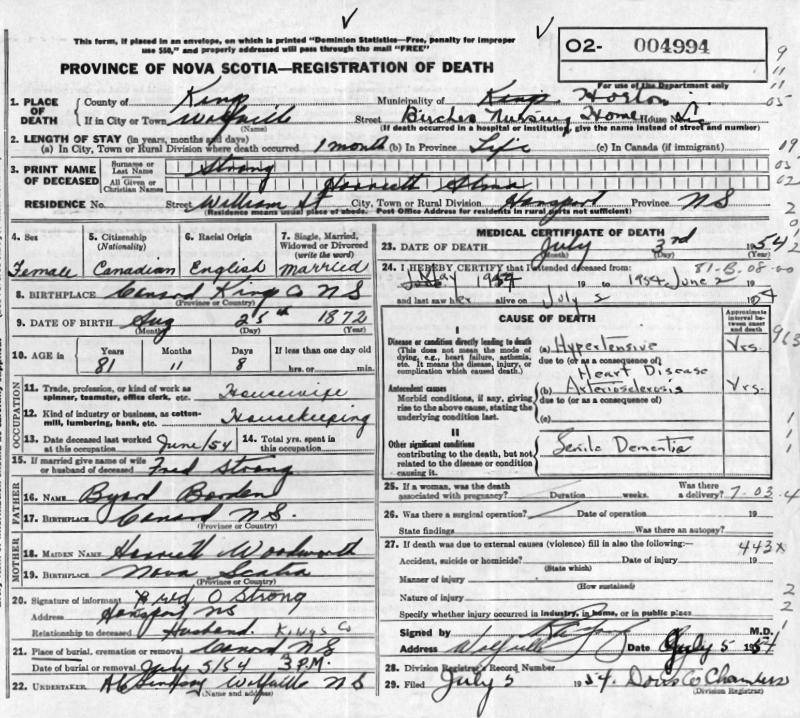 This form, if placed in an envelope, on which is printed "Dominion Statistics—Free, penalty for improper
use $50," and properly addressed will pass through the mail "FREE"
O2- 004994
For use of the Department only
PROVINCE OF NOVA SCOTIA—REGISTRATION OF DEATH
1. PLACE OF DEATH
County of Kings Municipality of Kings Horton
If in City or Town Wolfville Street Birches Nursing Home House No.
(Name) (If death occurred in a hospital or institution, give the name instead of street and number)
2. LENGTH OF STAY (in years, months and days)
(a) In City, Town or Rural Division where death occurred 1 month (b) In Province Life (c) In Canada (if immigrant)
3. PRINT NAME OF DECEASED
Surname or Last Name Strong
All Given or Christian Names Harriett Alma
RESIDENCE No. Street William St City, Town or Rural Division Hansport Province NS
(Residence means usual place of abode. Post Office Address for residents in rural parts not sufficient)
4. Sex Female
5. Citizenship (Nationality) Canadian
6. Racial Origin English
7. Single, Married, Widowed or Divorced (write the word) Married
8. BIRTHPLACE Canard Kings Co NS
(Province or Country)
9. DATE OF BIRTH Aug 25th 1872
(Month) (Day) (Year)
10. AGE in Years 81 Months 11 Days 8 If less than one day old hrs. or min.
OCCUPATION
11. Trade, profession, or kind of work as spinner, teamster, office clerk, etc. Housewife
12. Kind of industry or business, as cotton-mill, lumbering, bank, etc. Housekeeping
13. Date deceased last worked at this occupation June/54
14. Total yrs. spent in this occupation
15. If married give name of wife or husband of deceased Fred Strong
FATHER
16. NAME Byard Borden
17. BIRTHPLACE Canard NS.
(Province or Country)
MOTHER
18. MAIDEN NAME Harriett Woodworth
19. BIRTHPLACE Nova Scotia
(Province or Country)
20. Signature of informant Fred O Strong
Address Hansport NS
Kings Co
Relationship to deceased Husband
21. Place of burial, cremation or removal Canard NS
Date of burial or removal July 5/54 3 P.M.
22. UNDERTAKER Lindsay Wolfville NS
(Name and address)
MEDICAL CERTIFICATE OF DEATH
23. DATE OF DEATH July 3rd 1954
(Month) (Day) (Year)
81-B.08-00
24. I HEREBY CERTIFY that I attended deceased from:
May 1954 to 1954 June 2 19
and last saw her alive on July 2 1954
CAUSE OF DEATH
Approximate interval between onset and death
I
Disease or condition directly leading to death
(This does not mean the mode of dying, e.g., heart failure, asthenia, etc. It means the disease, injury, or complication which caused death.)
(a) Hypertensive Yrs.
due to (or as a consequence of)
Heart Disease
Antecedent causes
Morbid conditions, if any, giving rise to the above cause, stating the underlying condition last.
(b) Arteriosclerosis Yrs.
due to (or as a consequence of)
(c)
II
Other significant conditions
contributing to the death, but not related to the disease or condition causing it.
Senile Dementia
25. If a woman, was the death associated with pregnancy? Duration weeks. Was there a delivery?
7-03-4
26. Was there a surgical operation? Date of operation 19
State findings Was there an autopsy?
27. If death was due to external causes (violence) fill in also the following:—
443x
Accident, suicide or homicide? Date of injury 19
(State which)
Manner of injury
(How sustained)
Nature of injury
Specify whether injury occurred in industry, in home, or in public place
Signed by M.D.
Address Wolfville Date July 5 1954
28. Division Registrar's Record Number
29. Filed July 5 1954. Doris Chambers
(Division Registrar)